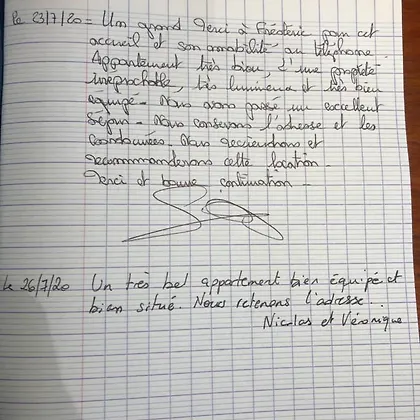 Le 23/7/20 = Un grand Merci à Frédéric pour cet
accueil et son amabilité au téléphone.
Appartement très beau, d'une propreté
irréprochable, très lumineux et très bien
équipé - Nous avons passé un excellent
séjour - Nous conservons l'adresse et les
coordonnées - Nous reviendrons et
recommanderons cette location -
Merci et bonne continuation -
Le 26/7/20 Un très bel appartement bien équipé et
bien situé. Nous retenons l'adresse...
Nicolas et Véronique